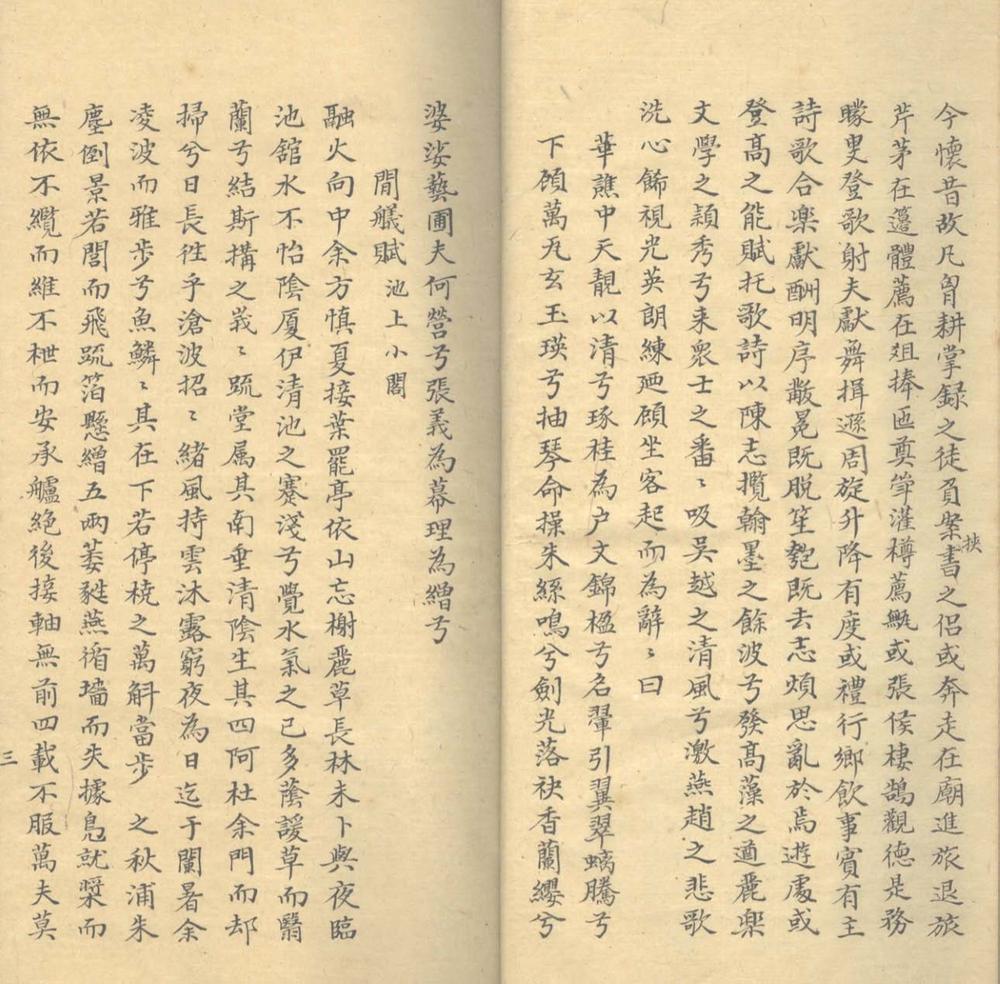 今懷昔故凡胄耕掌録之徒負案書之侶或奔走在廟進旅退旅
挾
芹茅在籩體薦在俎捧匜奠斝灌樽薦甒或張侯棲鵠觀德是務
矇叟登歌射夫獻舞揖遜周旋升降有度或禮行鄉飲事賓有主
詩歌合樂獻酬明序黻冕既脫笙匏既去志煩思亂於焉遊處或
登髙之能賦托歌詩以陳志攬翰墨之餘波兮發髙藻之遒麗樂
文學之穎秀兮来衆士之番〻吸吳越之清風兮激燕趙之悲歌
洗心飾視光英朗練廼顧坐客起而為辭〻曰
華譙中天靚以清兮琢桂為户文錦楹兮名翬引翼翠螭騰兮
下頋萬瓦玄玉瑛兮抽琴命操朱絲鳴兮劍光落袂香蘭纓兮
婆娑藝圃夫何營兮張義為幕理為繒兮
閒艤賦 池上小閣
融火向中余方慎夏接葉罷亭依山忘榭麗草長林未卜與夜臨
池舘水不怡陰厦伊清池之蹇淺兮覺水氣之已多蔭諼草而翳
蘭兮結斯搆之峩〻䟽堂属其南垂清陰生其四阿杜余門而却
掃兮日長徃乎滄波招〻緒風持雲沐露窮夜為日迄于闌暑余
凌波而雅步兮魚鱗〻其在下若停橈之萬斛當步 之秋浦朱
塵倒景若閭而飛䟽箔懸繒五兩萎蕤燕循墻而失據鳬就槳而
無依不纜而維不枻而安承艫絶後接軸無前四載不服萬夫莫
三